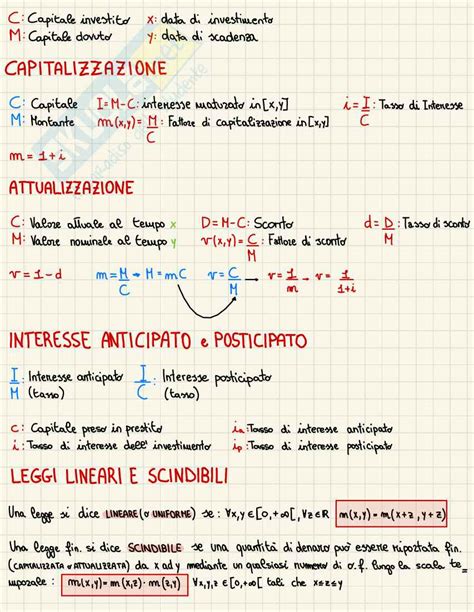 C: Capitale investito x: data di investimento
M: Capitale dovuto y: data di scadenza
CAPITALIZZAZIONE
C: Capitale I=M-C: interesse maturato in [x,y] i = I/C : Tasso di Interesse
M: Montante m(x,y) = M/C : Fattore di capitalizzazione in [x,y]
m = 1+i
ATTUALIZZAZIONE
C: Valore attuale al tempo x D = M-C: Sconto d = D/M : Tasso di sconto
M: Valore nominale al tempo y v(x,y) = C/M : Fattore di sconto
v = 1-d m = M/C → M = mC v = C/M → v = 1/m → v = 1/1+i
INTERESSE ANTICIPATO e POSTICIPATO
I/M : Interesse anticipato (tasso) I/C : Interesse posticipato (tasso)
C: Capitale preso in prestito ia: Tasso di interesse anticipato
i: Tasso di interesse dell' investimento ip: Tasso di interesse posticipato
LEGGI LINEARI E SCINDIBILI
Una legge si dice LINEARE (o UNIFORME) se: ∀x,y ∈ [0,+∞[, ∀z ∈ R m(x,y) = m(x+z, y+z)
Una legge fin. si dice SCINDIBILE se una quantità di denaro può essere riportata fin.
(CAPITALIZZATA o ATTUALIZZATA) da x ad y mediante un qualsiasi numero di o.f. lungo la scala te
mporale: m(x,y) = m(x,z) · m(z,y) ∀x,y,z ∈ [0,+∞[ tali che x≤z≤y